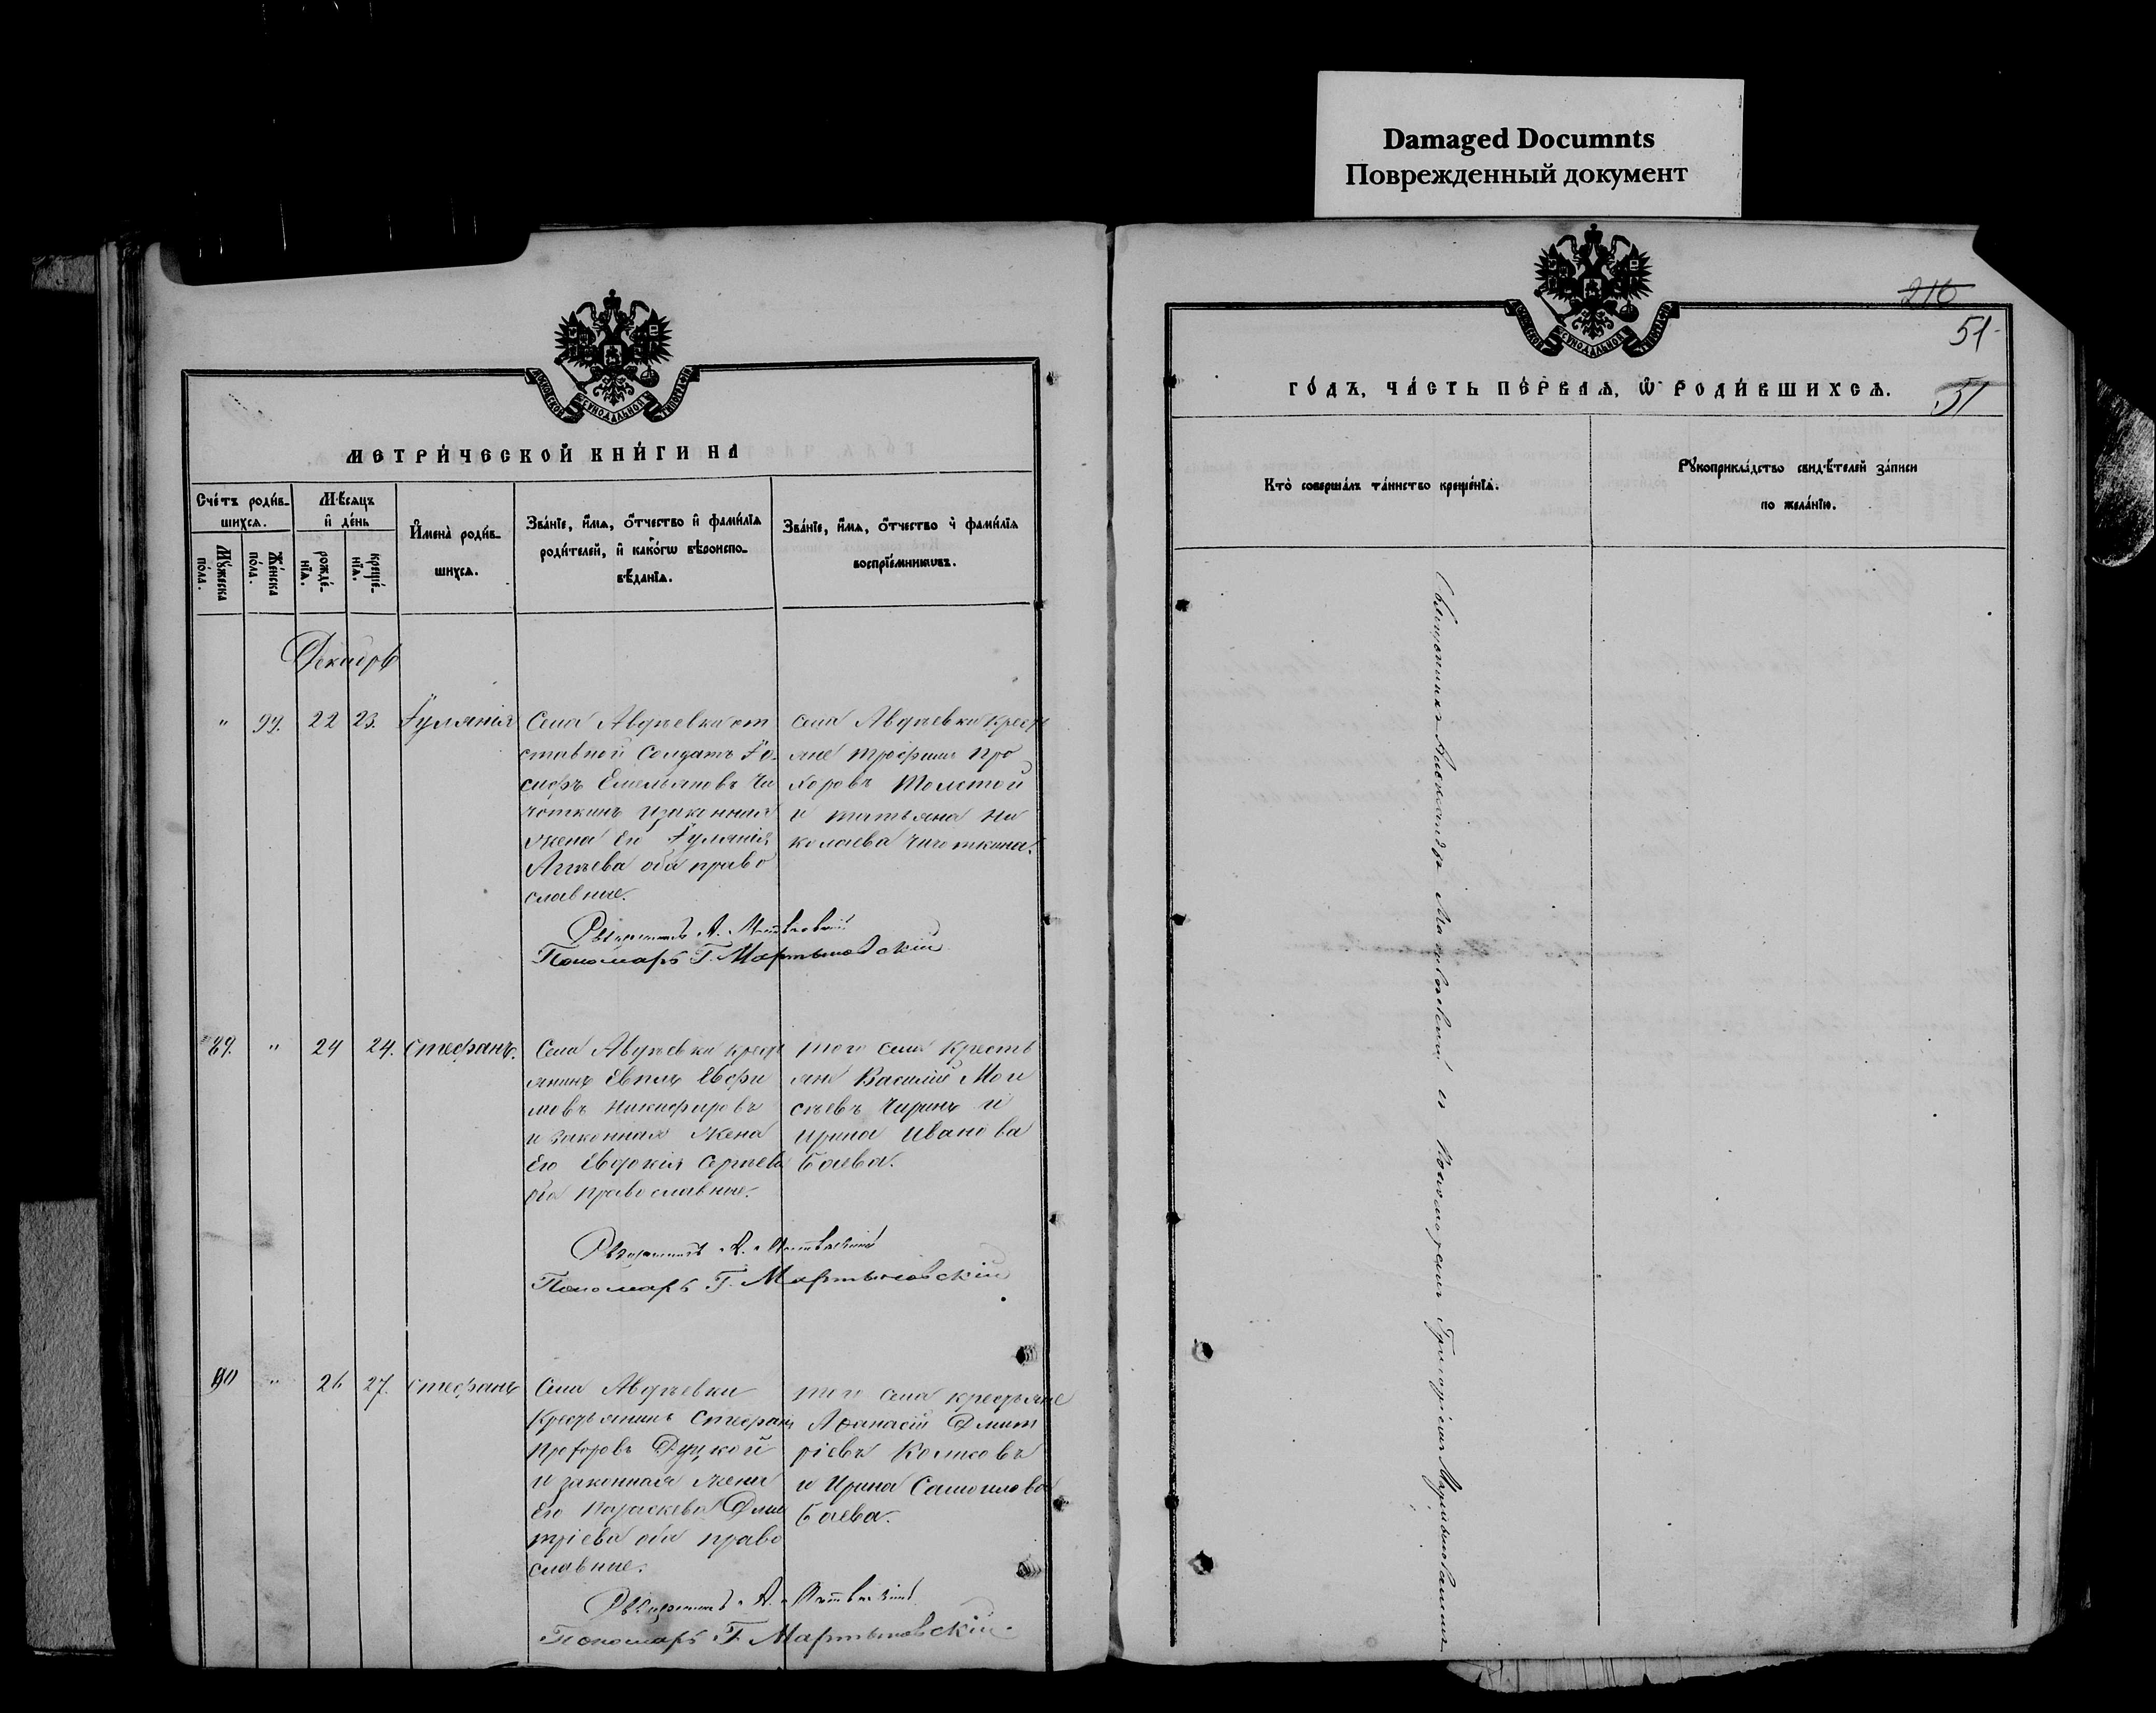 Damaged Documnts
Поврежденный документ
МОСКОВСКОЙ СУНОДАЛЬНОЙ ТИПОГРАФІИ
МЕТРИ́ЧЕСКОЙ КНИ́ГИ НА
Сче́тъ роди́в-
шихсѧ.
Мꙋ́жеска
по́ла.
Же́нска
по́ла.
Мѣ́сѧцъ
и҆ де́нь
рожде́-
нїѧ.
креще́-
нїѧ.
И҆мена̀ роди́в-
шихсѧ.
Зва́нїе, и҆́мѧ, ѻ҆́тчество и҆ фами́лїѧ
роди́телей, и҆ како́гѡ вѣроиспо-
вѣ́данїѧ.
Зва́нїе, и҆́мѧ, ѻ҆́тчество и҆ фами́лїѧ
воспрїе́мникѡвъ.
Декабрь
" 99. 22 23. Іуліанія
Села Авдѣевки от
ставной Солдатъ Іо-
сифъ Емельяновъ Чи
чоткинъ и законная
жена его Іуліанія
Агѣева оба право
славные.
села Авдѣевки Кресть
яне Трофимъ Про
хоровъ Толстой
и татьяна Ни
колаева Чичоткина.
Священникъ А.
Пономарь Г. Мартыновскій
89. " 24 24. Стефанъ.
Села Авдѣевки крестъ
янинъ Евплъ Евфи
мовъ Никифоровъ
и законная жена
его Евдокія Сергѣева
оба православные.
того села Кресть
яне Василій Мои
сѣевъ Чиринъ и
Ирина Иванова
Баева.
Священникъ А.
Пономарь Г. Мартыновскій
90 " 26 27. Стефанъ
Села Авдѣевки
Крестьянинъ Стефанъ
Прохоровъ Дуцкой
и законная жена
его Параскева Дми
тріева оба право
славные.
того села крестьяне
Афанасій Дмит
ріевъ Колисовъ
и Ирина Самоилова
Баева.
Священникъ А.
Пономарь Г. Мартыновскій.
216
51
51
МОСКОВСКОЙ СУНОДАЛЬНОЙ ТИПОГРАФІИ
ГО́ДЪ, ЧА́СТЬ ПЕ́РВАѦ, Ѽ РОДИ́ВШИХСѦ.
Кто̀ соверша́лъ та́инство креще́нїѧ.
Рꙋкоприкла́дство свидѣ́телей за́писи
по жела́нїю.
Священникъ Александръ съ Пономаремъ Григоріемъ Мартыновскимъ